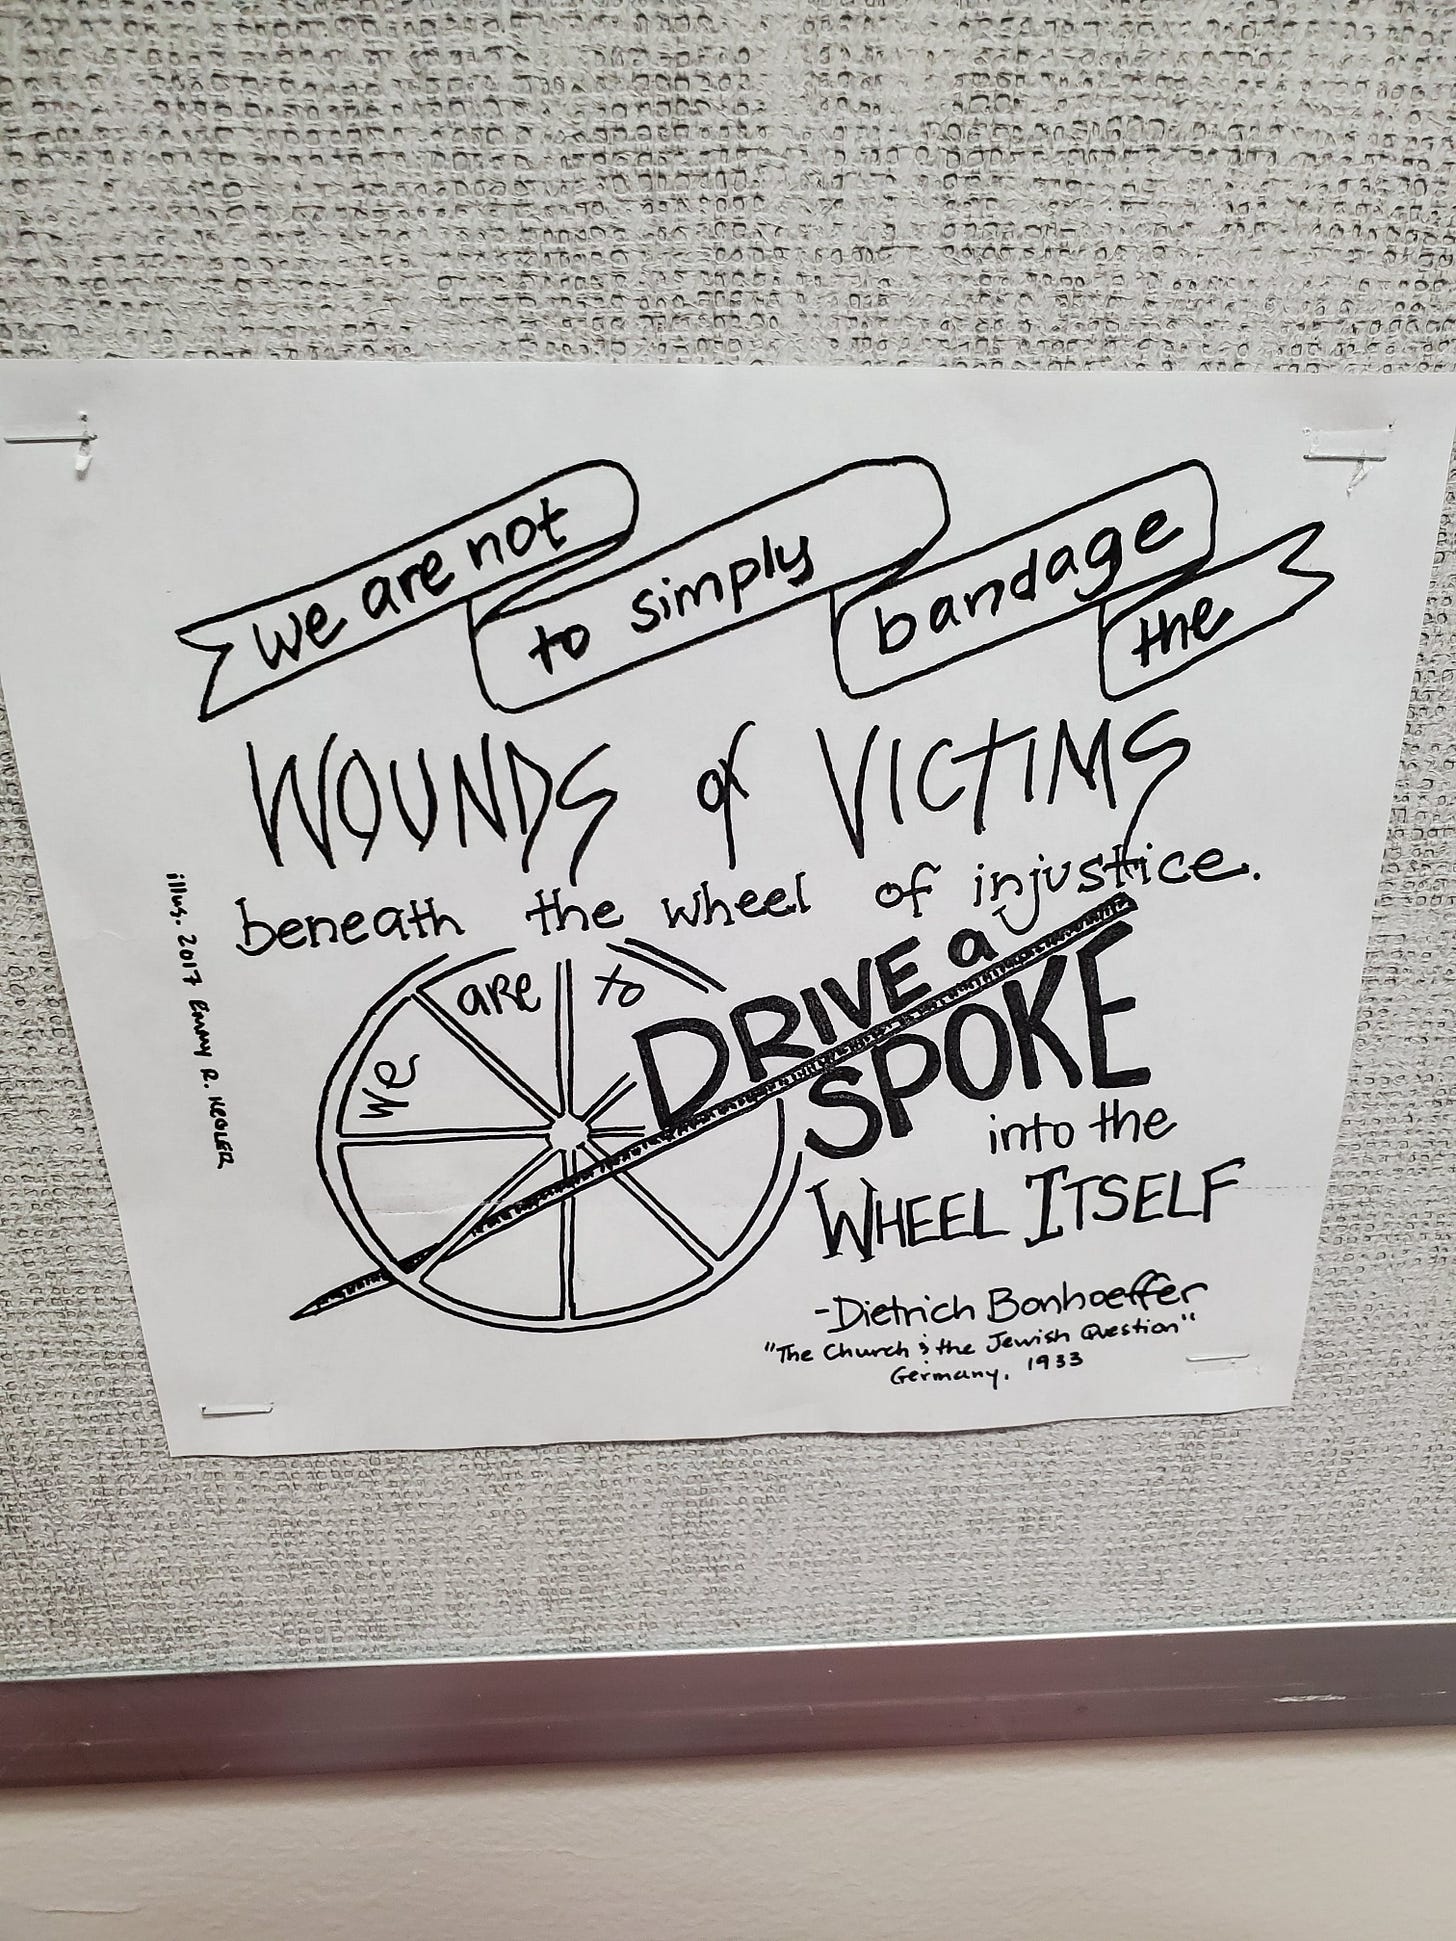 we are not
to simply
bandage
the
WOUNDS of VICTIMS
beneath the wheel of injustice.
We are to DRIVE a
SPOKE
into the
WHEEL ITSELF
-Dietrich Bonhoeffer
"The Church & the Jewish Question"
Germany, 1933
illus. 2017 Emmy R. KEGLER